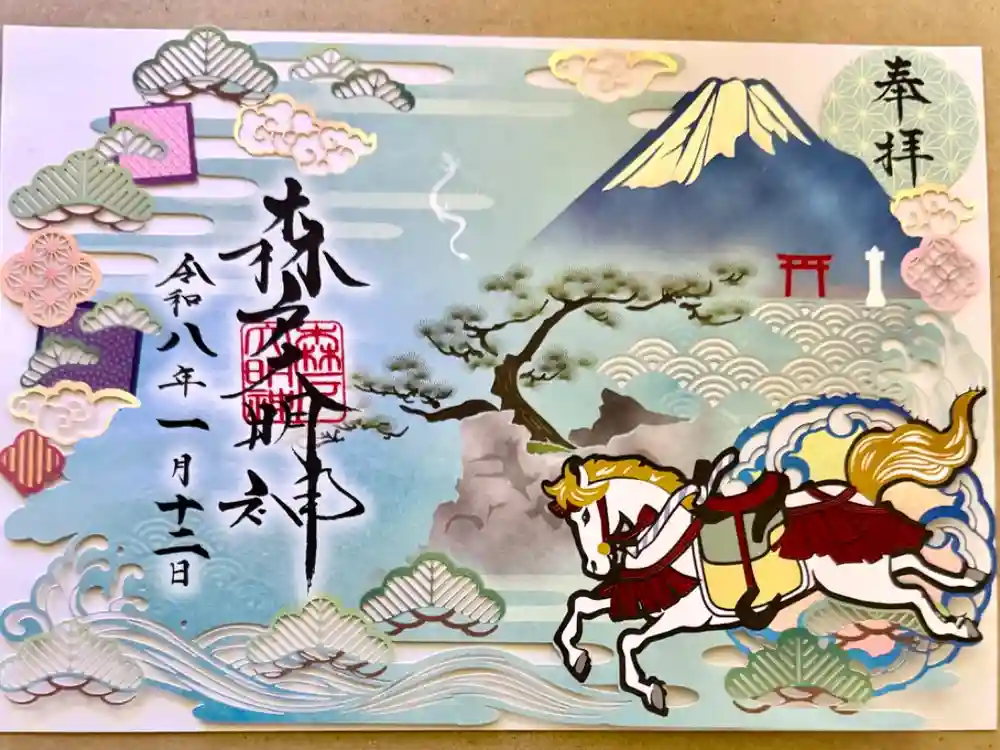 奉拝
森戸大明神
令和八年一月十二日
森戸大明神